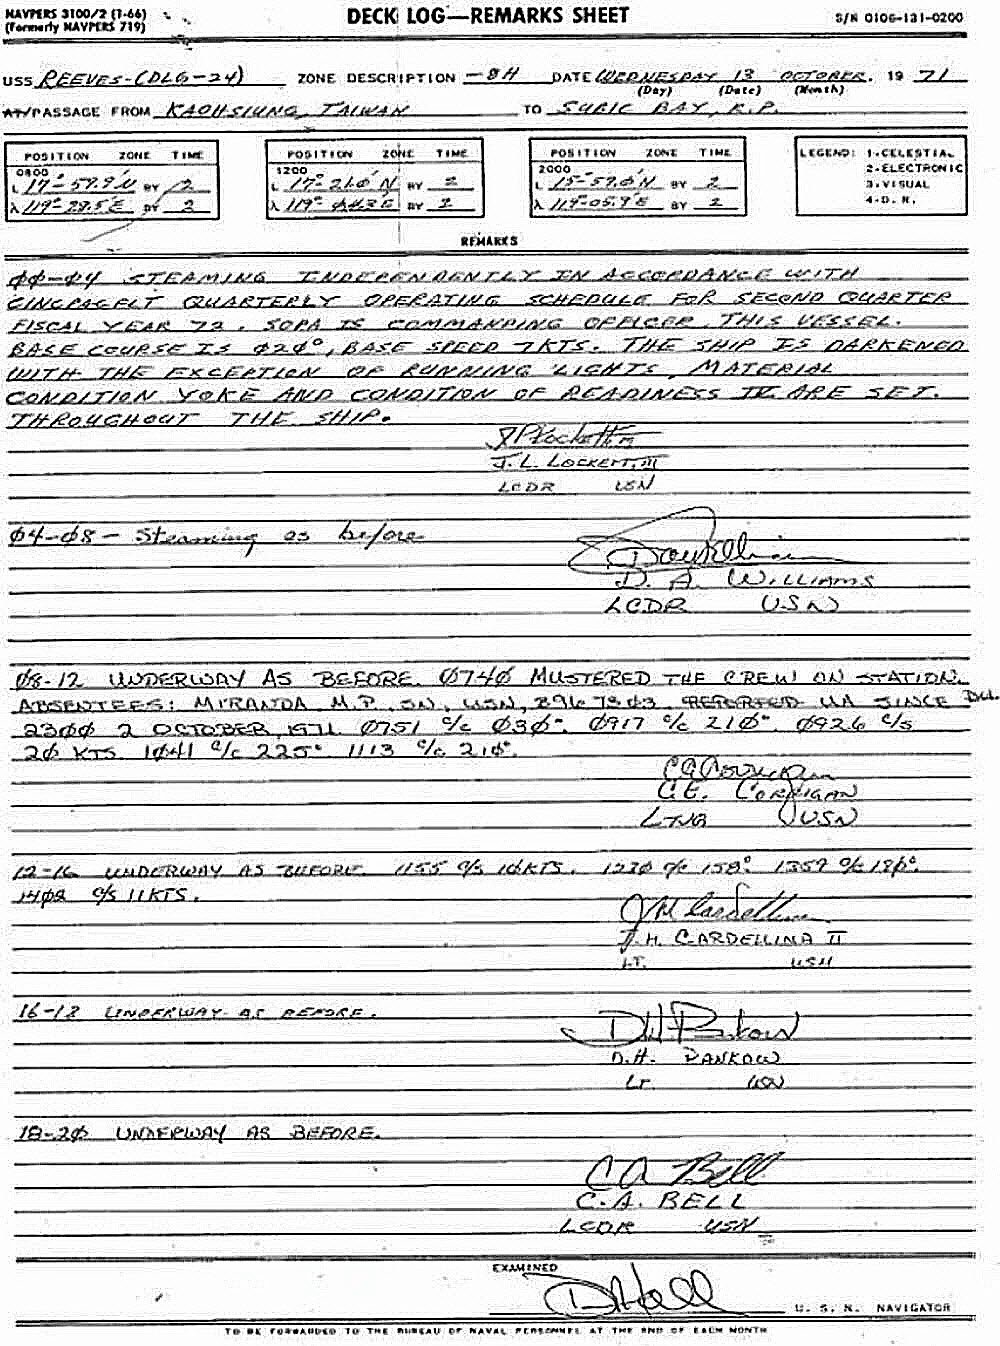 NAVPERS 3100/2 (1-66)
(Formerly NAVPERS 719)
DECK LOG—REMARKS SHEET
S/N 0106-131-0200
USS REEVES-(DLG-24) ZONE DESCRIPTION -8H DATE WEDNESDAY 13 OCTOBER, 19 71
(Day) (Date) (Month)
AT/PASSAGE FROM KAOHSIUNG, TAIWAN TO SUBIC BAY, R.P.
POSITION ZONE TIME
0800
L 17°-59.9'N BY 2
λ 119°-28.5'E BY 2
POSITION ZONE TIME
1200
L 17°-21.0'N BY 2
λ 119° BY 2
POSITION ZONE TIME
2000
L 15°-59.0'N BY 2
λ 119°-05.9'E BY 2
LEGEND: 1-CELESTIAL
2-ELECTRONIC
3-VISUAL
4-D. R.
REMARKS
ØØ-Ø4 STEAMING INDEPENDENTLY IN ACCORDANCE WITH
CINCPACFLT QUARTERLY OPERATING SCHEDULE FOR SECOND QUARTER
FISCAL YEAR 72. SOPA IS COMMANDING OFFICER THIS VESSEL.
BASE COURSE IS Ø2Ø°, BASE SPEED 7KTS. THE SHIP IS DARKENED
WITH THE EXCEPTION OF RUNNING LIGHTS, MATERIAL
CONDITION YOKE AND CONDITION OF READINESS IV ARE SET.
THROUGHOUT THE SHIP.
J. L. LOCKETT, III
LCDR USN
Ø4-Ø8 - Steaming as before
D. A. WILLIAMS
LCDR USN
Ø8-12 UNDERWAY AS BEFORE. Ø74Ø MUSTERED THE CREW ON STATION.
ABSENTEES: MIRANDA M.P., SN, USN, REPORTED UA SINCE
23ØØ 2 OCTOBER, 1971 Ø751 c/c Ø3Ø°. Ø917 c/c 21Ø° Ø926 c/s
2Ø KTS. 1Ø41 c/c 225° 1113 c/c 21Ø°.
C.E. CORRIGAN
LTJG USN
12-16 UNDERWAY AS BEFORE. 1155 c/s 1ØKTS. 123Ø c/c 158° 1357 c/c
14Ø2 c/s 11KTS.
CARDELLINA II
LT. USN
16-18 UNDERWAY AS BEFORE.
D.H. PANKOW
LT USN
18-2Ø UNDERWAY AS BEFORE.
C A Bell
C. A. BELL
LCDR USN
EXAMINED
U. S. N. NAVIGATOR
TO BE FORWARDED TO THE BUREAU OF NAVAL PERSONNEL AT THE END OF EACH MONTH